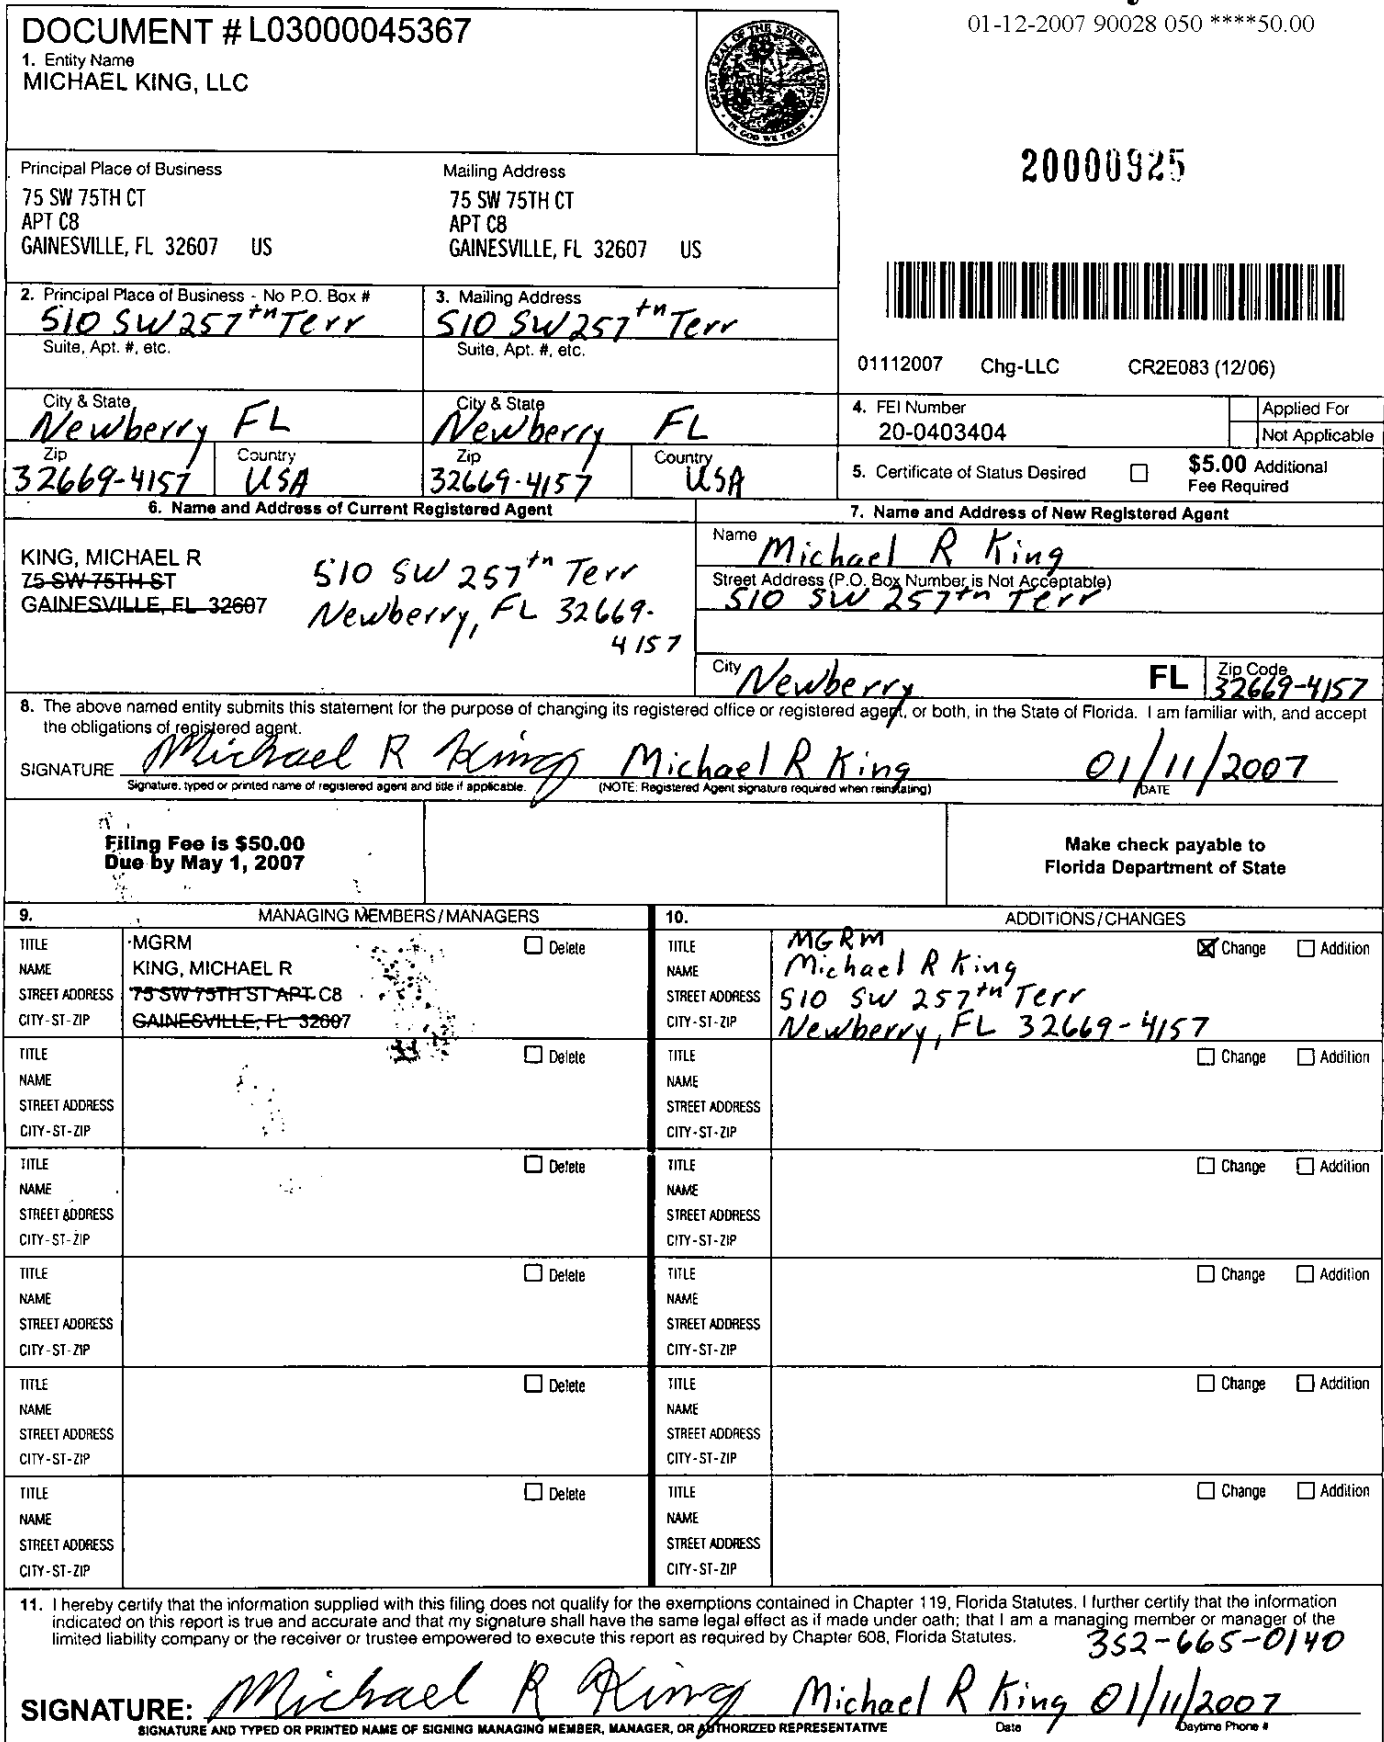 01-12-2007 90028 050 ****50.00
DOCUMENT # L03000045367
1. Entity Name
MICHAEL KING, LLC
GREAT SEAL OF THE STATE OF FLORIDA
IN GOD WE TRUST
20000925
Principal Place of Business
75 SW 75TH CT
APT C8
GAINESVILLE, FL 32607 US
Mailing Address
75 SW 75TH CT
APT C8
GAINESVILLE, FL 32607 US
2. Principal Place of Business - No P.O. Box #
510 SW 257th Terr
Suite, Apt. #, etc.
3. Mailing Address
510 SW 257th Terr
Suite, Apt. #, etc.
01112007 Chg-LLC CR2E083 (12/06)
City & State
Newberry FL
City & State
Newberry FL
Zip
32669-4157
Country
USA
Zip
32669-4157
Country
USA
4. FEI Number
20-0403404
Applied For
Not Applicable
5. Certificate of Status Desired
$5.00 Additional
Fee Required
6. Name and Address of Current Registered Agent
KING, MICHAEL R
75 SW 75TH ST
GAINESVILLE, FL 32607
510 SW 257th Terr
Newberry, FL 32669-
4157
7. Name and Address of New Registered Agent
Name
Michael R King
Street Address (P.O. Box Number is Not Acceptable)
510 SW 257th Terr
City Newberry FL Zip Code
32669-4157
8. The above named entity submits this statement for the purpose of changing its registered office or registered agent, or both, in the State of Florida. I am familiar with, and accept
the obligations of registered agent.
SIGNATURE Michael R King Michael R King 01/11/2007
Signature, typed or printed name of registered agent and title if applicable. (NOTE: Registered Agent signature required when reinstating) DATE
Filing Fee is $50.00
Due by May 1, 2007
Make check payable to
Florida Department of State
9. MANAGING MEMBERS/MANAGERS
TITLE MGRM Delete
NAME KING, MICHAEL R
STREET ADDRESS 75 SW 75TH ST APT C8
CITY-ST-ZIP GAINESVILLE, FL 32607
10. ADDITIONS/CHANGES
TITLE MGRM Change Addition
NAME Michael R King
STREET ADDRESS 510 SW 257th Terr
CITY-ST-ZIP Newberry, FL 32669-4157
TITLE Delete
NAME
STREET ADDRESS
CITY-ST-ZIP
TITLE Change Addition
NAME
STREET ADDRESS
CITY-ST-ZIP
TITLE Delete
NAME
STREET ADDRESS
CITY-ST-ZIP
TITLE Change Addition
NAME
STREET ADDRESS
CITY-ST-ZIP
TITLE Delete
NAME
STREET ADDRESS
CITY-ST-ZIP
TITLE Change Addition
NAME
STREET ADDRESS
CITY-ST-ZIP
TITLE Delete
NAME
STREET ADDRESS
CITY-ST-ZIP
TITLE Change Addition
NAME
STREET ADDRESS
CITY-ST-ZIP
TITLE Delete
NAME
STREET ADDRESS
CITY-ST-ZIP
TITLE Change Addition
NAME
STREET ADDRESS
CITY-ST-ZIP
11. I hereby certify that the information supplied with this filing does not qualify for the exemptions contained in Chapter 119, Florida Statutes. I further certify that the information
indicated on this report is true and accurate and that my signature shall have the same legal effect as if made under oath; that I am a managing member or manager of the
limited liability company or the receiver or trustee empowered to execute this report as required by Chapter 608, Florida Statutes.
352-665-0140
SIGNATURE: Michael R King Michael R King 01/11/2007
SIGNATURE AND TYPED OR PRINTED NAME OF SIGNING MANAGING MEMBER, MANAGER, OR AUTHORIZED REPRESENTATIVE Date Daytime Phone #